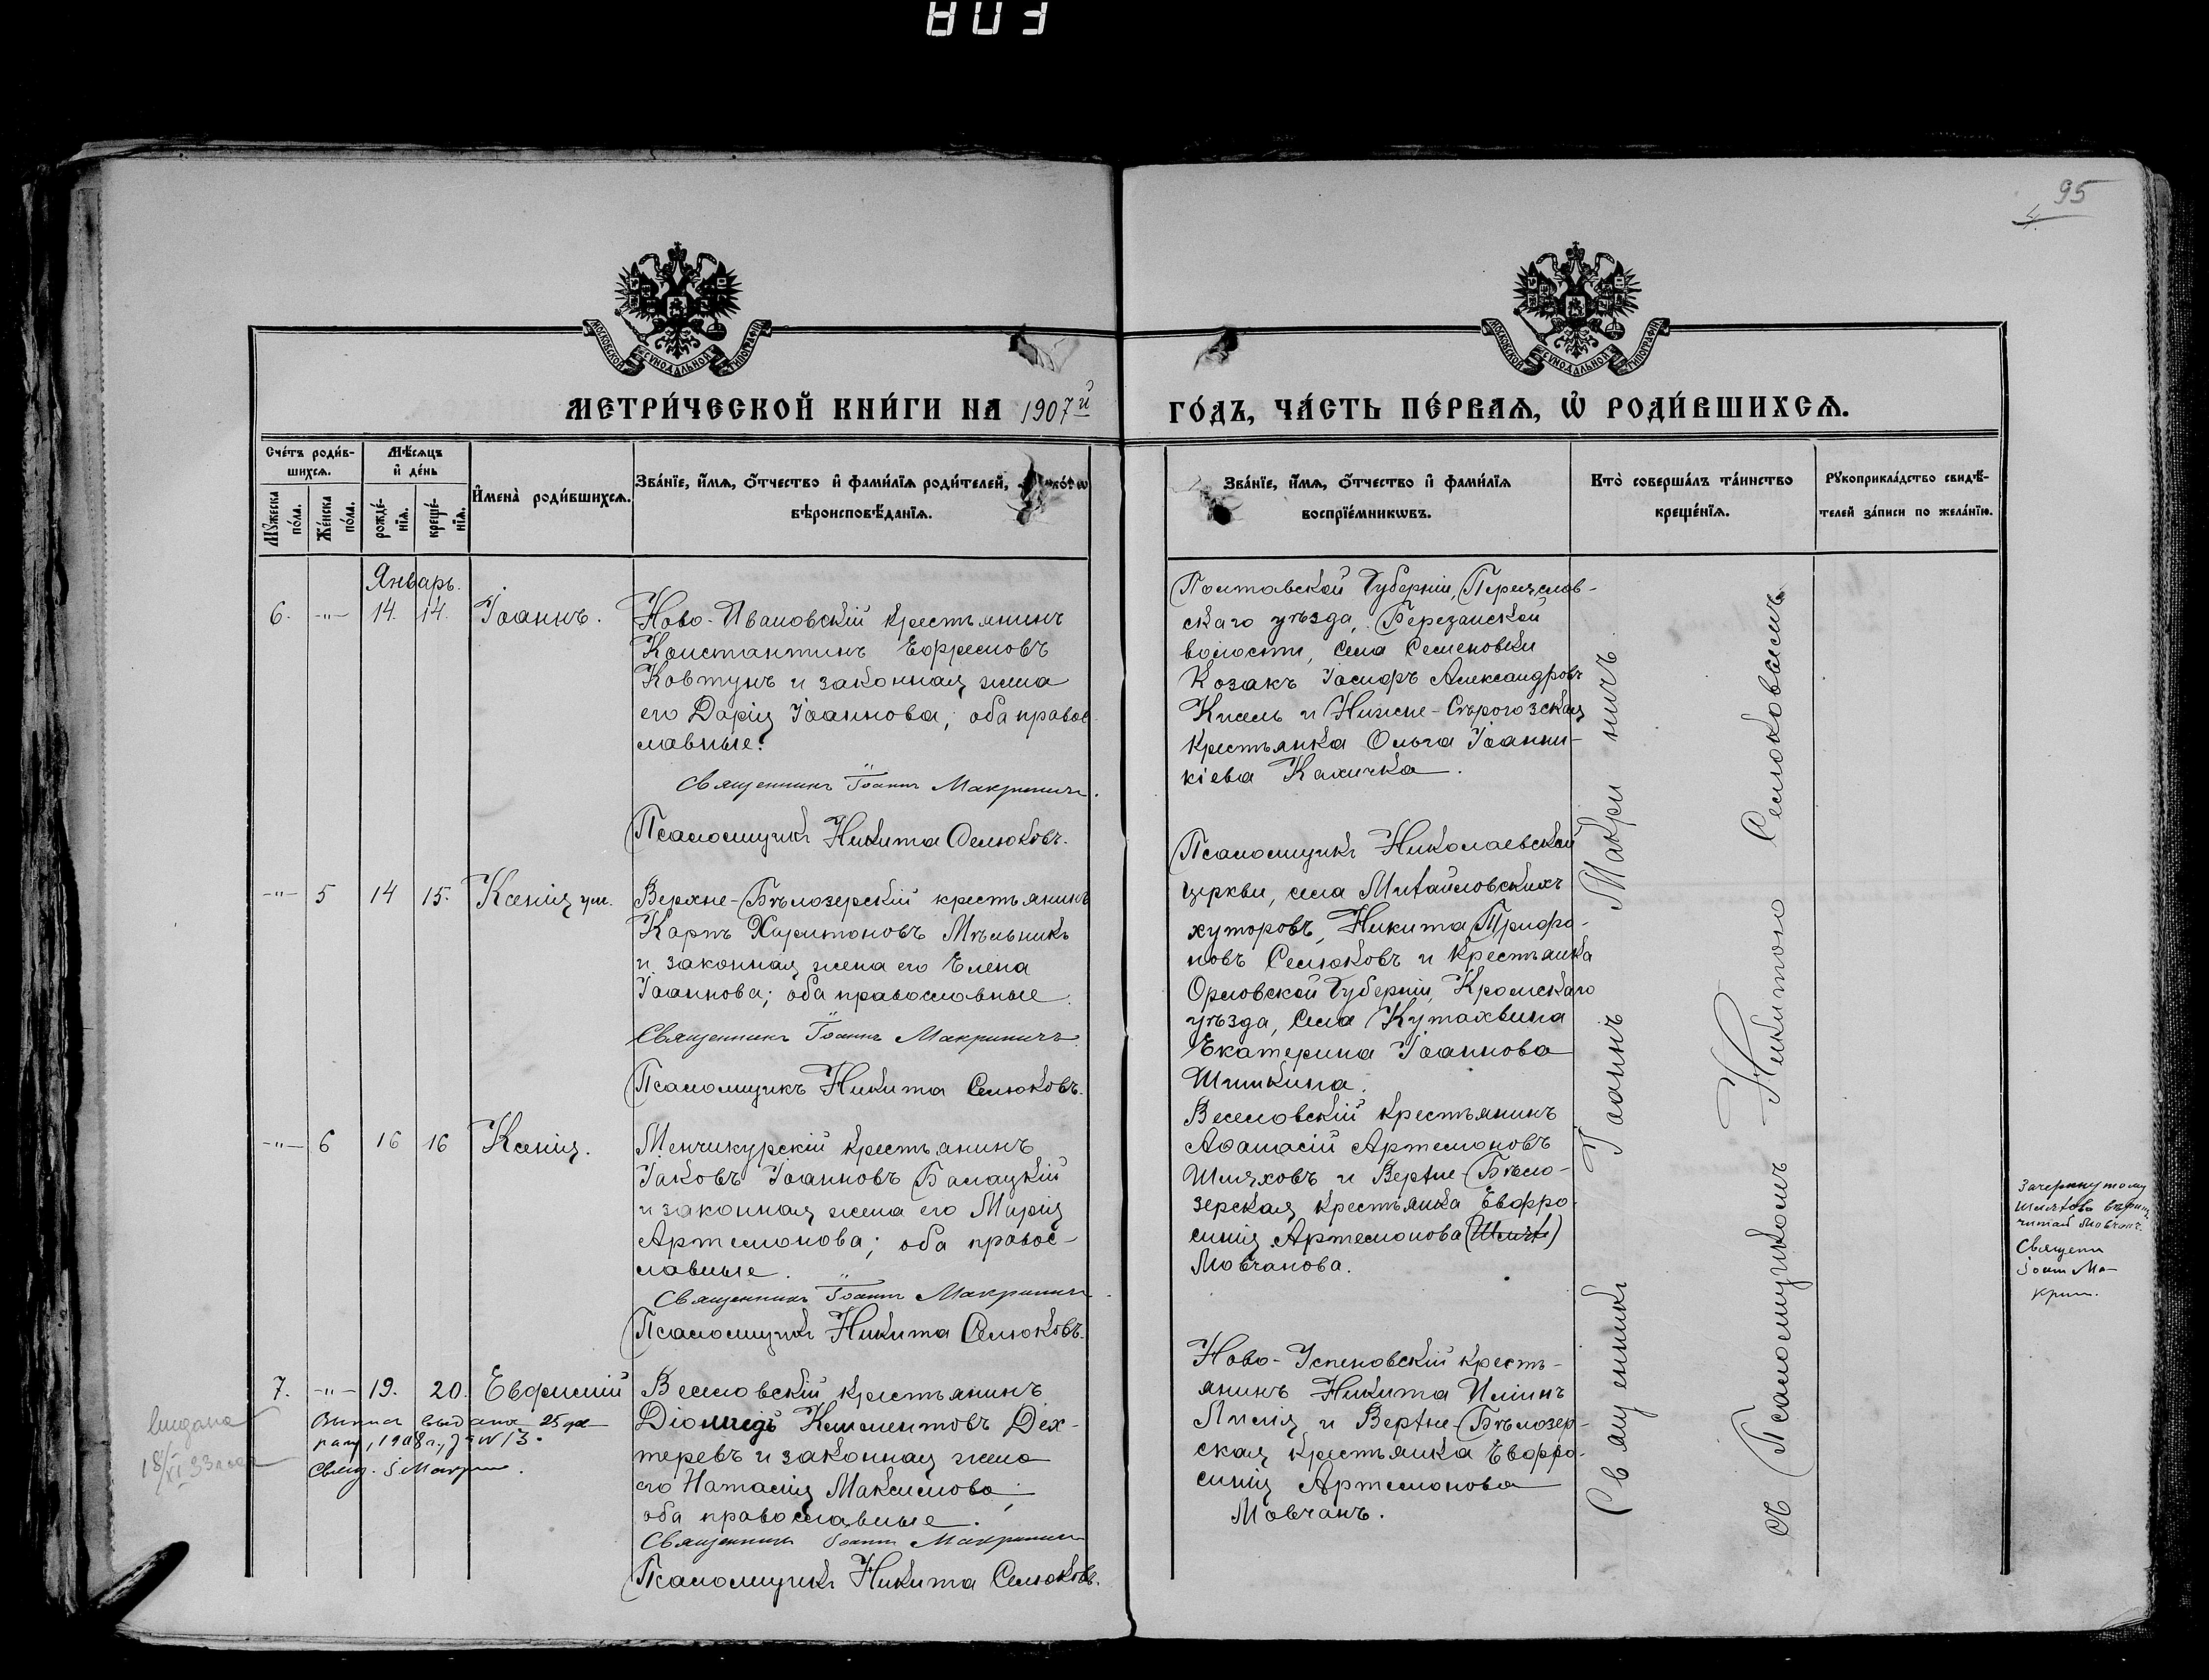 95
4.
МОСКОВСКОЙ СѴНОДАЛЬНОЙ ТИПОГРАФІИ
МОСКОВСКОЙ СѴНОДАЛЬНОЙ ТИПОГРАФІИ
МЕТРИ́ЧЕСКОЙ КНИ́ГИ НА 1907й ГО́ДЪ, ЧА́СТЬ ПЕ́РВАЯ, Ѽ РОДИ́ВШИХСЯ.
Сче́тъ роди́в-
шихся.
Мꙋ́жеска по́ла.
Же́нска по́ла.
Мѣ́сяцъ
и҆ де́нь
рожде́-
нїя.
креще́-
нїя.
И҆мена̀ роди́вшихся.
Зва́нїе, и҆́мя, ѻ҆́тчество и҆ фами́лїя роди́телей,
вѣроисповѣ́данїя.
Зва́нїе, и҆́мя, ѻ҆́тчество и҆ фами́лїя
воспрїе́мникѡвъ.
Кто̀ соверша́лъ та́инство
креще́нїя.
Рꙋкоприкла́дство свидѣ́-
телей за́писи по жела́нїю.
Январь.
6. -"- 14. 14. Іоаннъ.
Ново-Ивановскій крестьянинъ
Константинъ Ефремовъ
Ковтунъ и законная жена
его Дарія Іоаннова; оба правос-
лавные.
Священникъ Іоаннъ Макриничъ.
Псаломщикъ Никита Селюковъ.
Полтавской Губерніи, Переяслов-
скаго уѣзда, Березанской
волости, села Семеновки
Козакъ Іосифъ Александровъ
Кисель и Нижне-Сѣрогозская
крестьянка Ольга Іоанни-
кіева Каличка.
-"- 5 14 15. Ксенія ум.
Верхне-Бѣлозерскій крестьянинъ
Карпъ Харитоновъ Мѣльникъ
и законная жена его Елена
Іоаннова; оба православные.
Священникъ Іоаннъ Макриничъ.
Псаломщикъ Никита Селюковъ.
Псаломщикъ Николаевской
церкви, села Михайловскихъ
хуторовъ, Никита Трифо-
новъ Селюковъ и крестьянка
Орловской Губерніи, Кромскаго
уѣзда, села
Екатерина Іоаннова
Шишкина.
-"- 6 16 16 Ксенія.
Менчикурскій крестьянинъ
Іаковъ Іоанновъ Балацкій
и законная жена его Марія
Артемонова; оба правос-
лавные.
Священникъ Іоаннъ Макриничъ.
Псаломщикъ Никита Селюковъ.
Веселовскій крестьянинъ
Аѳанасій Артемоновъ
Шляховъ и Верхне-Бѣло-
зерская крестьянка Евфро-
синія Артемонова (Шлях)
Мовчанова.
7. -"- 19. 20. Евфимій
Веселовскій крестьянинъ
Діонисій Климентовъ Дех-
теревъ и законная жена
его Наталія Максимова;
оба православные.
Священникъ Іоаннъ Макриничъ
Псаломщикъ Никита Селюковъ.
Ново-Успеновскій кресть-
янинъ Никита Ильинъ
и Верхне-Бѣлозер-
ская крестьянка Евфро-
синія Артемонова
Мовчанъ.
выдана 25
1908 г., за № 13.
18/XI 33
Священникъ Іоаннъ Макриничъ
съ Псаломщикомъ Никитою Селюковымъ
Зачеркнутому
читай Мовчан.
Священ
Іоанн Ма-
крин.